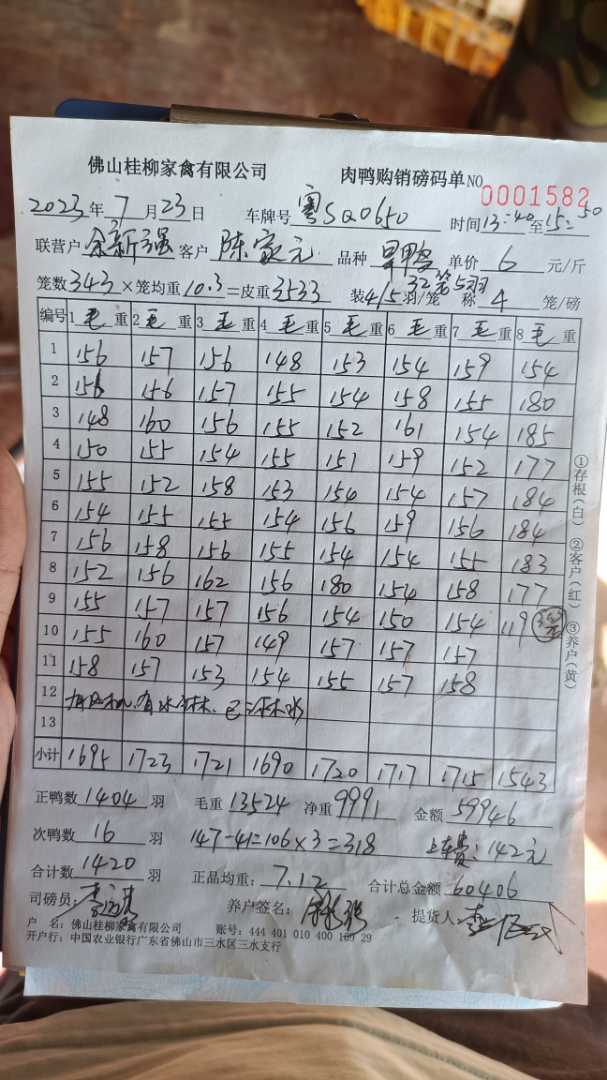 佛山桂柳家禽有限公司 肉鸭购销磅码单 NO 0001582
2023年7月23日 车牌号 粤SQ0650 时间13:40至15:50
联营户 余新强 客户 陈家元 品种 旱鸭 单价 6 元/斤
笼数343×笼均重10.3=皮重3533 装4/5羽/笼 32笼5羽 称4笼/磅
编号 1毛重 2毛重 3毛重 4毛重 5毛重 6毛重 7毛重 8毛重
1 156 157 156 148 153 154 159 154
2 156 156 157 155 154 158 155 180
3 148 160 156 155 152 161 154 185
4 150 155 154 155 151 159 152 177
5 155 152 158 153 154 154 157 184
6 154 155 155 154 156 159 156 184
7 156 158 156 155 154 154 155 183
8 152 156 162 156 180 154 158 177
9 155 157 157 156 154 150 154 119
10 155 160 157 149 157 157 157
11 158 157 153 154 155 157 158
12
13
小计 1695 1723 1721 1690 1720 1717 1715 1543
正鸭数 1404 羽 毛重 13524 净重 9991 金额 59946
次鸭数 16 羽 147-41=106×3=318 上车费:142元
合计数 1420 羽 正品均重: 7.12 合计总金额 60406
司磅员: 养户签名: 提货人:
户 名:佛山桂柳家禽有限公司 账号:444 401 010 400 169 29
开户行:中国农业银行广东省佛山市三水区三水支行
①存根(白) ②客户(红) ③养户(黄)